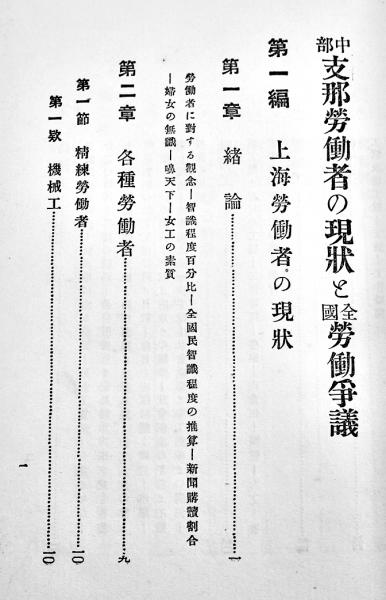 中部支那勞働者の現狀と全國勞働爭議
第一編　上海勞働者の現狀
第一章　緖論……一
勞働者に對する觀念―智識程度百分比―全國民智識程度の推算―新聞購讀割合
―婦女の無識―鳴天下―女工の素質
第二章　各種勞働者……九
第一節　精練勞働者……一〇
第一款　機械工……一〇
一